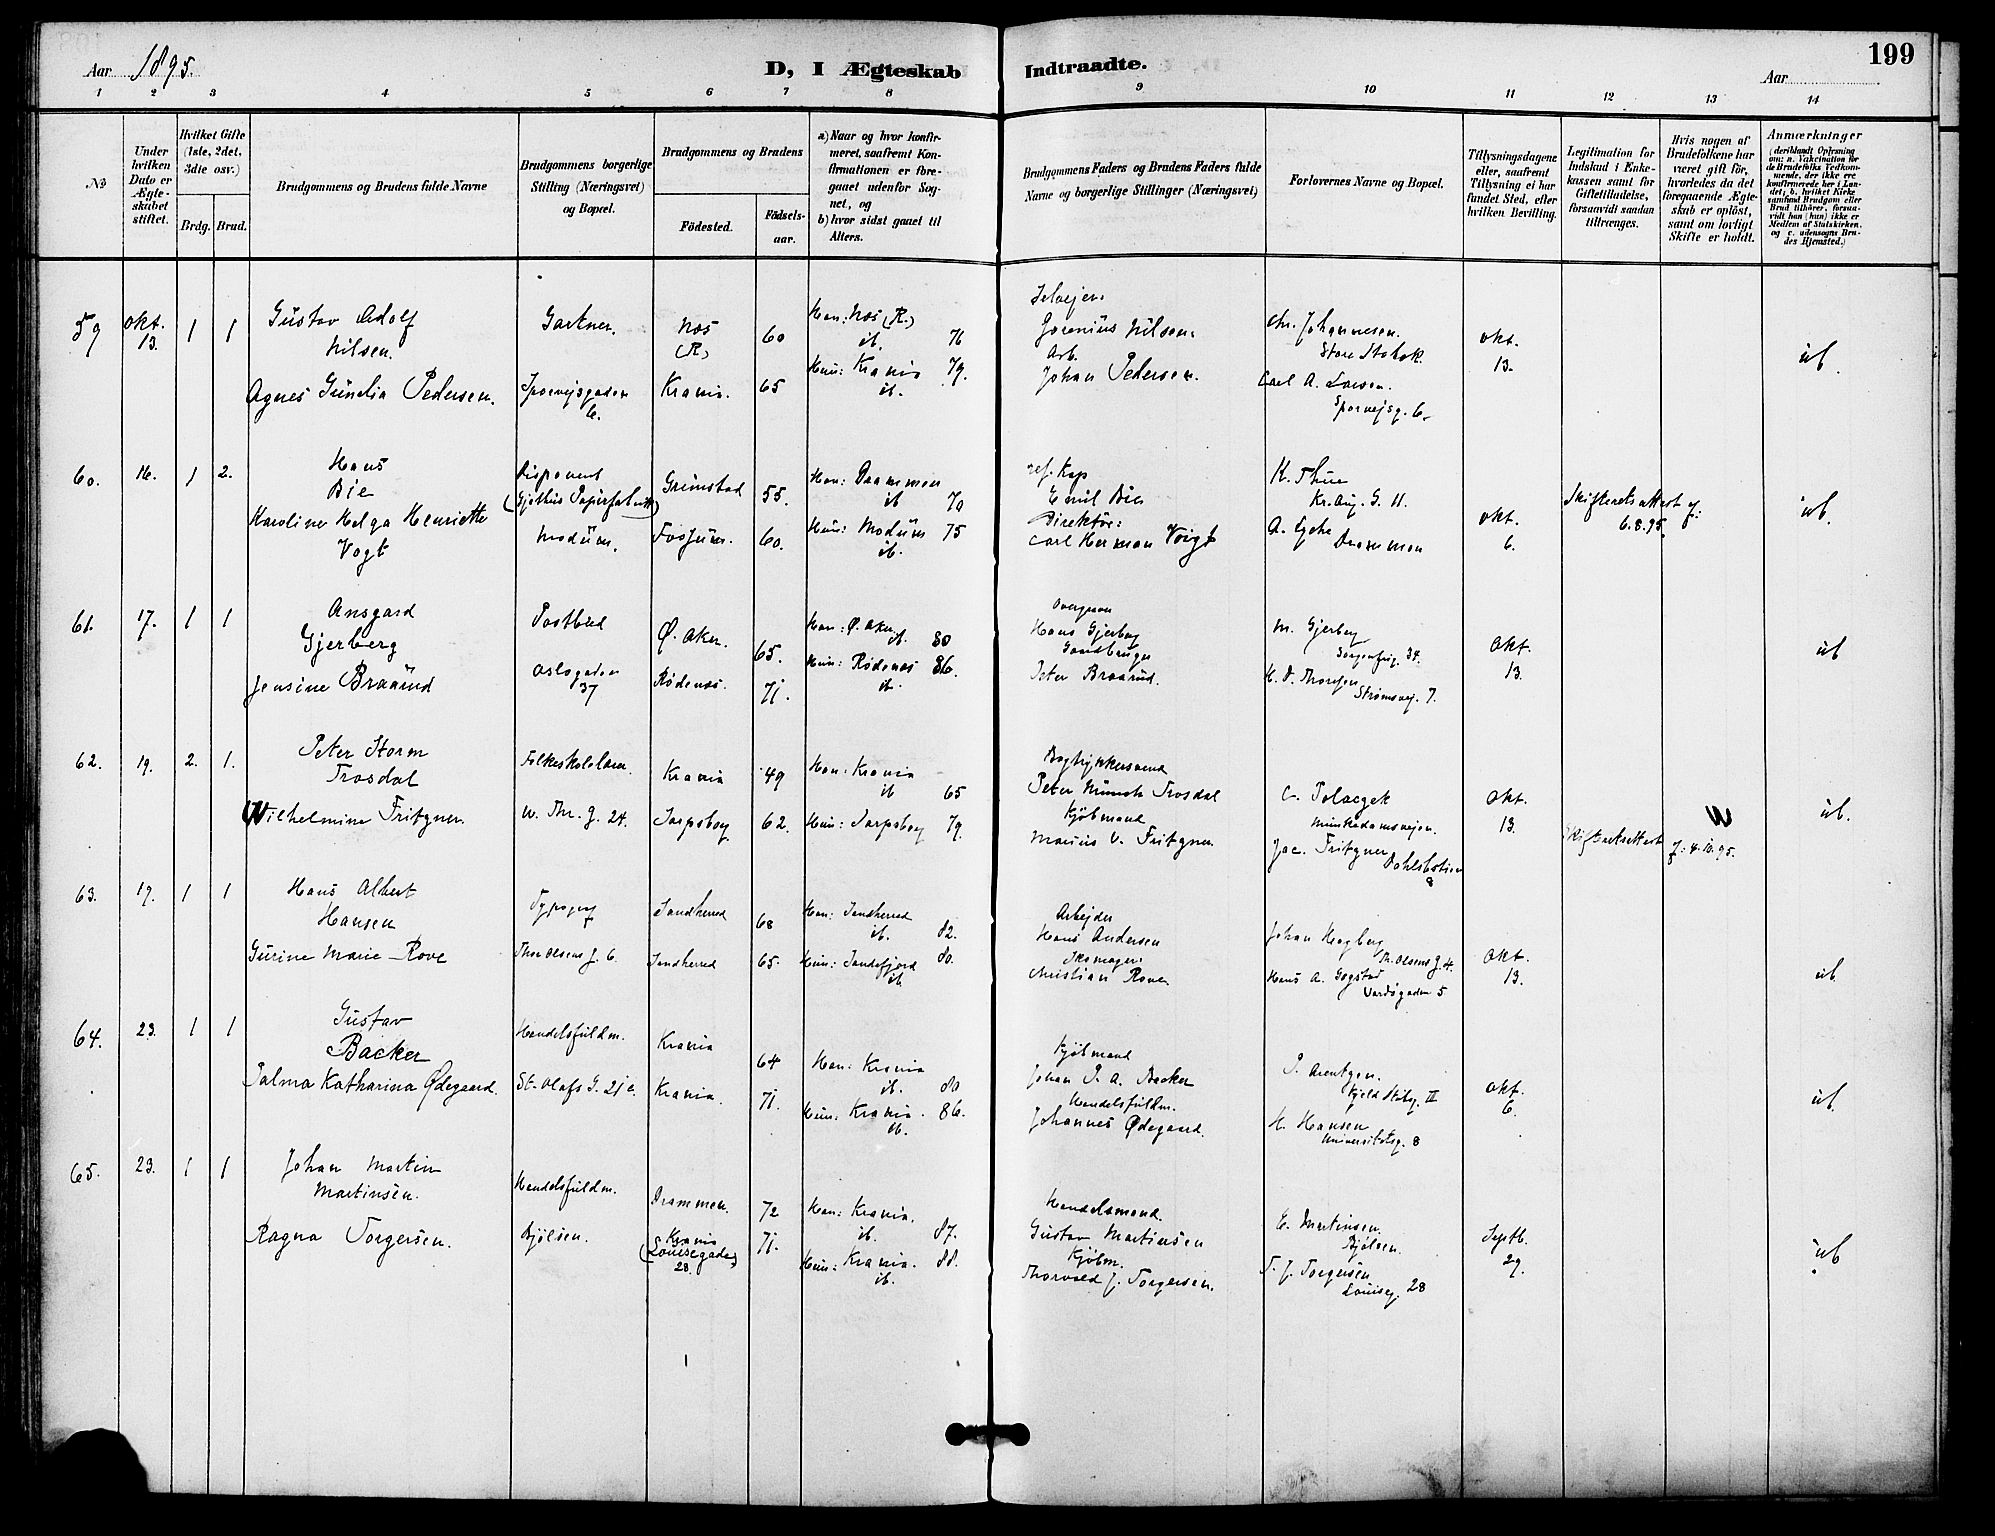 Aar 1895.
D, I Ægteskab Indtraadte.
199
Aar
1 2 3 4 5 6 7 8 9 10 11 12 13 14
No
Under hvilken Dato er Ægteskabet stiftet.
Hvilket Gifte (1ste, 2det, 3die osv.)
Brdg. Brud.
Brudgommens og Brudens fulde Navne
Brudgommens borgerlige Stilling (Næringsvei) og Bopæl.
Brudgommens og Brudens
Fødested.
Fødselsaar.
a) Naar og hvor konfirmeret, saafremt Konfirmationen er foregaaet udenfor Sognet, og
b) hvor sidst gaaet til Alters.
Brudgommens Faders og Brudens Faders fulde Navne og borgerlige Stillinger (Næringsvei)
Forlovernes Navne og Bopæl.
Tillysningsdagene eller, saafremt Tillysning ei har fundet Sted, efter hvilken Bevilling.
Legitimation for Indskud i Enkekassen samt for Giftetilladelse, forsaavidt saadan tiltrænges.
Hvis nogen af Brudefolkene har været gift før, hvorledes da det foregaaende Ægteskab er opløst, samt om lovligt Skifte er holdt.
Anmærkninger
59 Okt. 13. 1 1
Gustav Adolf
Nilsen.
Gartner.
Næs
(R.)
60
Han: Næs (R.)
ib. 76
Selvejer:
Nilsen.
Chr. Johannesen.
Store Stabæk.
Okt.
13.
ub.
Agnes Gunelia Pedersen.
Sporvejsgaden
6.
Krania.
65
Hun: Krania 79.
ib.
Arb.
Johan Pedersen.
Carl A. Larsen.
Sporvejsg. 6.
60. 16. 1 2.
Hans
Bie
Disponent
(Gjethus Papirfabrik)
Grimstad
55.
Han: Drammen
ib 70
Kap
Emil Bie
K. Thue
Kr. Aug. G. 11.
Skifteretsattest f:
6.8.95.
ub.
Karoline Helga Henriette
Vogt
Modum.
Fossum.
60.
Hun: Modum 75
ib.
Direktør:
Carl Herman Voigt
A.
Drammen
Okt.
6.
61. 17. 1 1
Ansgard
Gjerberg
Postbud
Ø. Aker.
65.
Han: Ø. Aker
ib. 80
Hans Gjerberg
M. Gjerberg
Sorgenfrig. 34.
Okt.
13.
ub
Jensine Braarud
Oslogaden
37
Rødenæs.
71.
Hun: Rødenæs 86.
ib.
Gaardbruger
Peter Braarud.
Strømsvej. 7.
62. 19. 2. 1.
Peter Storm
Trosdal
Folkeskolelærer.
Krania
49
Han: Krania
ib 65
Bogtrykkersvend
Peter Munch Trosdal
C. Polaczek
Munkedamsvejen.
Okt.
13.
ub.
Wilhelmine Fritzner.
W. Thr. G. 24.
Sarpsborg
62.
Hun: Sarpsborg 79.
Kjøbmand
Marius V. Fritzner.
Jac. Fritzner
8
Skifteretsattest
f: 4.10.95.
63. 19. 1 1
Hans Albert
Hansen
Typograf
Sandherred
68
Han: Sandherred
ib. 82.
Arbejder
Hans Andersen
Johan Hagberg
Th. Olsens G. 4.
Okt.
13.
ub.
Gurine Marie Rove
Thor Olsens G. 6.
Sandherred
65.
Hun: Sandefjord 80.
ib.
Skomager:
Christian Rove.
Hans A. Gogstad
Vardøgaden 5
64. 23. 1 1
Gustav
Backer
Handelsfuldm.
Krania
64
Han: Krania
ib. 80
Kjøbmand
Johan P. A. Backer
P. Arentzen.
Kjeld Stubsg. III
Okt.
6.
ub.
Palma Katharina Ødegaard.
St. Olafs G. 21 c.
Krania.
71.
Hun: Krania. 86.
ib.
Handelsfuldm.
Johannes Ødegaard.
H. Hansen
Universitetsg. 8
65. 23. 1 1
Johan Martin
Martinsen.
Handelsfuldm.
Drammen.
72
Han: Krania.
ib. 87.
Handelsmand.
Gustav Martinsen
E. Martinsen
Bjølsen.
Septb.
29.
ub
Ragna Torgersen.
Bjølsen.
Krania
(Louisegaden
28.)
71.
Hun: Krania. 88.
ib.
Kjøbm.
Thorvald J. Torgersen.
T. J. Torgersen
Louiseg. 28